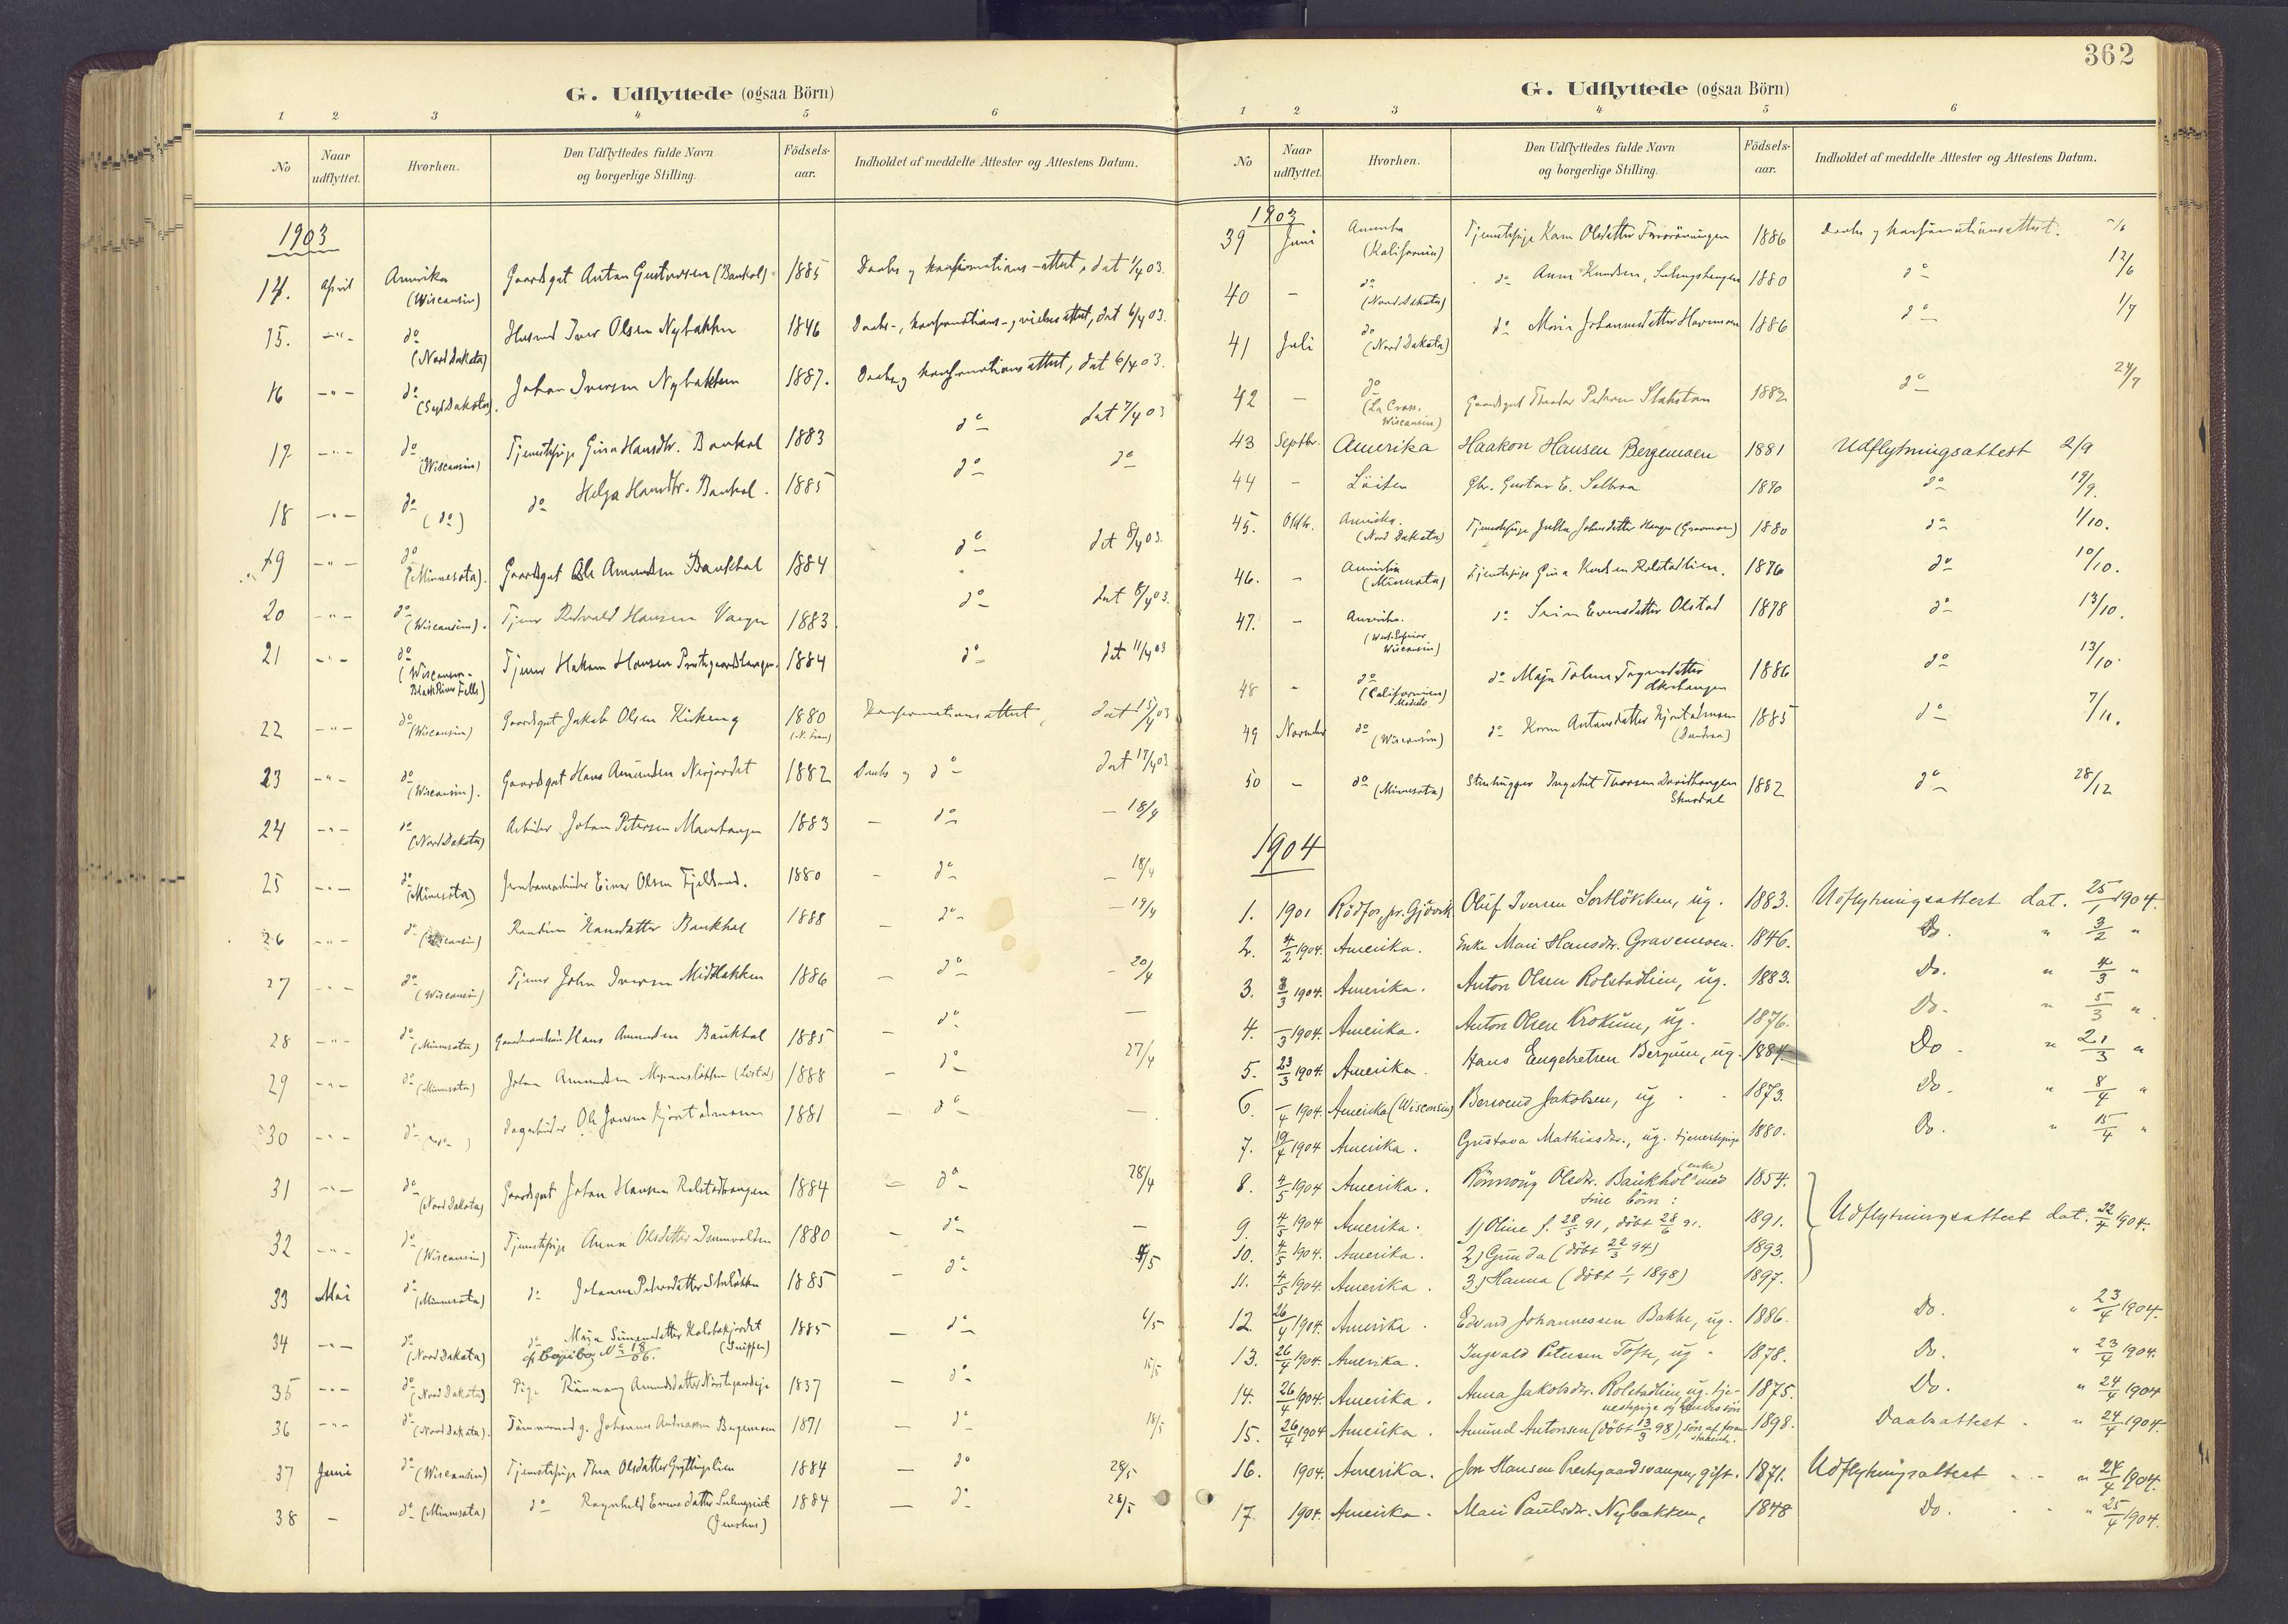 362
G. Udflyttede (ogsaa Börn)
1 2 3 4 5 6
No Naar udflyttet. Hvorhen. Den Udflyttedes fulde Navn og borgerlige Stilling. Födsels-aar. Indholdet af meddelte Attester og Attestens Datum.
1903
14. April Amerika (Wisconsin) Gaardsgut Anton Gustavsen (Baukol) 1885 Daabs og konfirmations-attest, dat 1/4 03.
15. -"- do (Nord Dakota) Husmd Iver Olsen Nybakken 1846 Daabs-, konfirmations- og vielsesattest, dat 6/4 03.
16 -"- do (Syd Dakota). Johan Iversen Nybakken 1887. Daabs og konfirmationsattest, dat 6/4 03.
17 -"- do (Wisconsin) Tjenestepige Gina Hansdtr. Baukol 1883 do dat 7/4 03
18 -"- do (do) do Helga Hansdtr. Baukol. 1885 do do
19 -"- do (Minnesota). Gaardsgut Ole Amundsen Baukhol 1884 do dat 8/4 03.
20 -"- do (Wisconsin). Tjener Hansen 1883. do dat 8/4 03.
21 -"- do (Wisconsin - Black River Falls) Tjener Hakon Hansen 1884 do dat 11/4 03
22 -"- do (Wisconsin) Gaardsgut Jakob Olsen Kirkeng 1880 (N. Fron) Konfirmationsattest, dat 15/4 03
23 -"- do (Wisconsin). Gaardsgut Hans Amundsen Nerjordet 1882 Daabs og do dat 17/4 03
24 -"- do (Nord Dakota) Arbeider Johan Petersen 1883 - do - 18/4
25 -"- do (Minesota) Einar Olsen 1880 - do - 18/4
26 -"- do (Wisconsin) Hansdatter Baukhol 1888 - do - 19/4
27 -"- do (Wisconsin) Tjener John Iversen Midtbakken 1886 - do - 20/4
28 -"- do (Minnesota) Hans Amundsen Baukhol 1885 - do -
29 -"- do (Minnesota) Johan Amundsen 1888 - do 27/4
30 -"- do Dagarbeider Ole Jensen 1881 - do -
31 -"- do (Nord Dakota) Gaardsgut Johan Hansen 1884 - do 28/4
32 -"- do (Wisconsin) Tjenestepige Anna Olsdatter 1880 - do -
33 Mai do (Minnesota) do Johanne Pedersdatter 1885 - do 4/5
34 -"- do (Nord Dakota) do Maria Simensdatter 1885 - do 6/5
No 18/06.
35 -"- do (Nord Dakota) Pige Rönnaug Amundsdatter 1837 - do 15/5
36 -"- do (Nord Dakota). Johannes Andreassen Bergemoen 1871 - do 18/5
37 Juni do (Wisconsin) Tjenestepige Thea Olsdatter 1884 - do 28/5
38 - do (Minnesota) do Ragnhild Evensdatter 1884 - do 28/5
G. Udflyttede (ogsaa Börn)
1 2 3 4 5 6
No Naar udflyttet. Hvorhen. Den Udflyttedes fulde Navn og borgerlige Stilling. Födsels-aar. Indholdet af meddelte Attester og Attestens Datum.
1903
39 Juni Amerika (Kalifornien) Tjenestepige Karen Olsdatter 1886 Daabs og konfirmationsattest.
40 - do (Nord Dakota) do Anne Knudsen, 1880 do 12/6
41 Juli do (Nord Dakota) do Marie Johannesdatter 1886 do 1/7
42 - do (La Cross. Wisconsin) Gaardsgut Theodor Petersen 1882 do 24/7
43 Septbr. Amerika Haakon Hansen Bergemoen 1881 Udflytningsattest 2/9
44 - Löiten Gbr. Gustav E. 1870 do 19/9.
45. Oktbr. Amerika. (Nord Dakota) Tjenestepige Johnsdatter 1880 do 1/10.
46. - Amerika (Minnesota) Tjenestepige Gina Knudsen Rolstadlien. 1876 do 10/10.
47. - Amerika. (West Superior Wisconsin) do Evensdatter Olstad 1878 do 13/10.
48 - do (Californien) do 1886 do 13/10.
49 November do (Wisconsin) do Karen Antonsdatter 1885 do 7/11.
50 - do (Minnesota) Stenhugger Ingebret Thorsen 1882 do 28/12
1904
1. 1901 Rödfos, pr. Gjövik Oluf Iversen Sortlökken, ug. 1883. Udflytningsattest dat. 25/1 1904.
2. 4/2 1904. Amerika. Enke Mari Hansdtr. Gravemoen. 1846. Do. " 3/2 "
3. 8/3 1904. Amerika. Anton Olsen Rolstadlien, ug. 1883. Do. " 4/3 "
4. -/3 1904. Amerika. Anton Olsen Krokum, ug. 1876. Do. " 5/3 "
5. 23/3 1904. Amerika. Hans Engebretsen Bergum, ug. 1884. Do. " 21/3 "
6. -/4 1904. Amerika (Wisconsin) Bersvend Jakobsen, ug. 1873. Do. " 8/4 "
7. 19/4 1904 Amerika. Gustava Mathiasdtr., ug. tjenestepige 1880. Do. " 15/4 "
8. 4/5 1904 Amerika. Rönnaug Olsdtr. Baukhol (enke) med sine börn: 1854.
9. 4/5 1904 Amerika. 1) Oline f. 28/5 91, döbt 28/6 91. 1891. Udflytningsattest dat. 22/4 1904.
10. 4/5 1904. Amerika. 2) Gunda (döbt 22/3 94) 1893.
11. 4/5 1904. Amerika. 3) Hanna (döbt 1/1 1898) 1897.
12. 26/4 1904. Amerika. Edvard Johannessen Bakke, ug. 1886. Do. " 23/4 1904.
13. 26/4 1904. Amerika. Ingvald Petersen Tofte, ug 1878. Do. " 23/4 1904.
14. 26/4 1904. Amerika. Anna Jakobsdtr. Rolstadlien, ug. tje-nestepige og hendes sön 1875. Do. " 24/4 1904
15. 26/4 1904 Amerika. Amund Antonsen (döbt 13/3 98), sön af foran-staaende. 1898. Daabsattest. " 24/4 1904.
16. 1904. Amerika. Jon Hansen Prestgaardsvangen, gift. 1871. Udflytningsattest " 24/4 1904.
17. 1904. Amerika. Mari Paulsdtr. Nybakken, 1848 Do. " 25/4 1904.